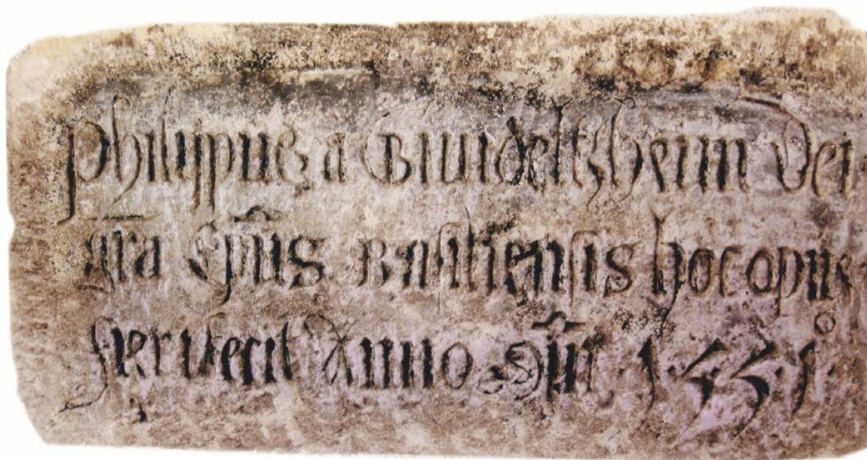 Philippus a Gundeltzheim Dei
gra Epus Basiliensis hoc opus
fieri fecit Anno Dni 1531